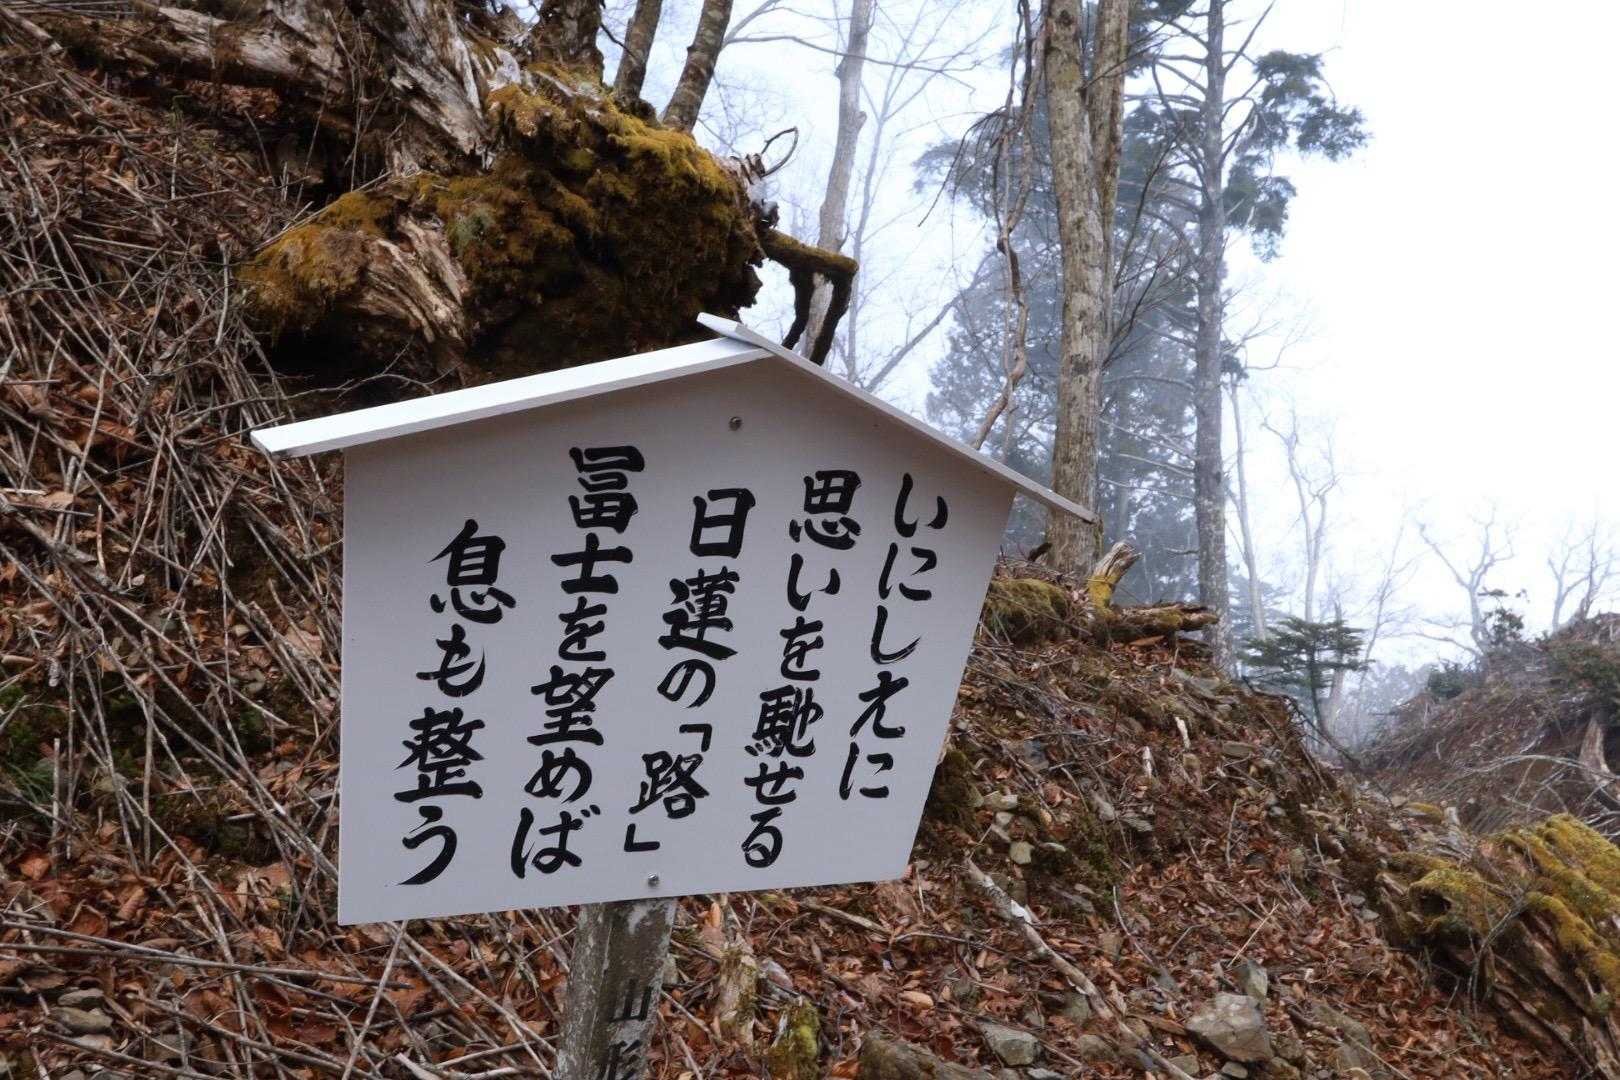 いにしえに
思いを馳せる
日蓮の「路」
冨士を望めば
息も整う
山形